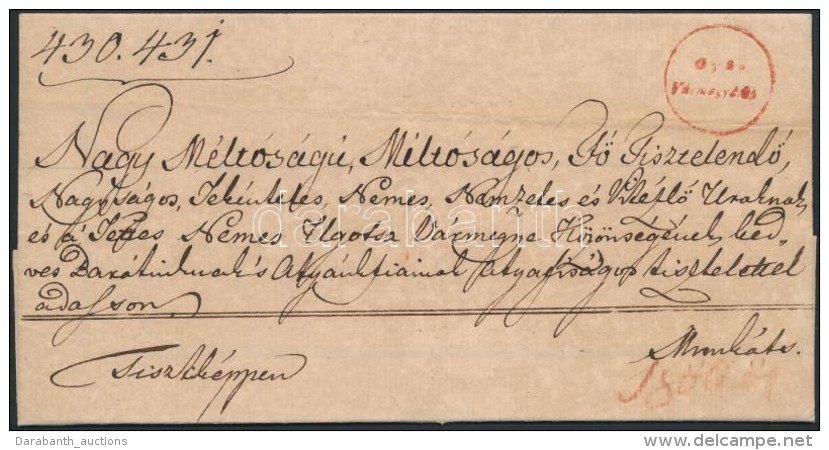 430. 431.
Gyu.
Vármegyétől
Nagy Méltóságú, Méltóságos, Fő Tisztelendő,
Nagyságos, Tekintetes, Nemes, Nemzetes és Vitézlő Uraknak,
és a' Nemes Ugotsa Vármegye Közönségének, ked„
ves Barátinknak 's Atyánkfiainak atyafiságos tisztelettel
adasson.
Munkáts.
Tisztképpen
darabanth
Darabanth_auctions
delcampe.net